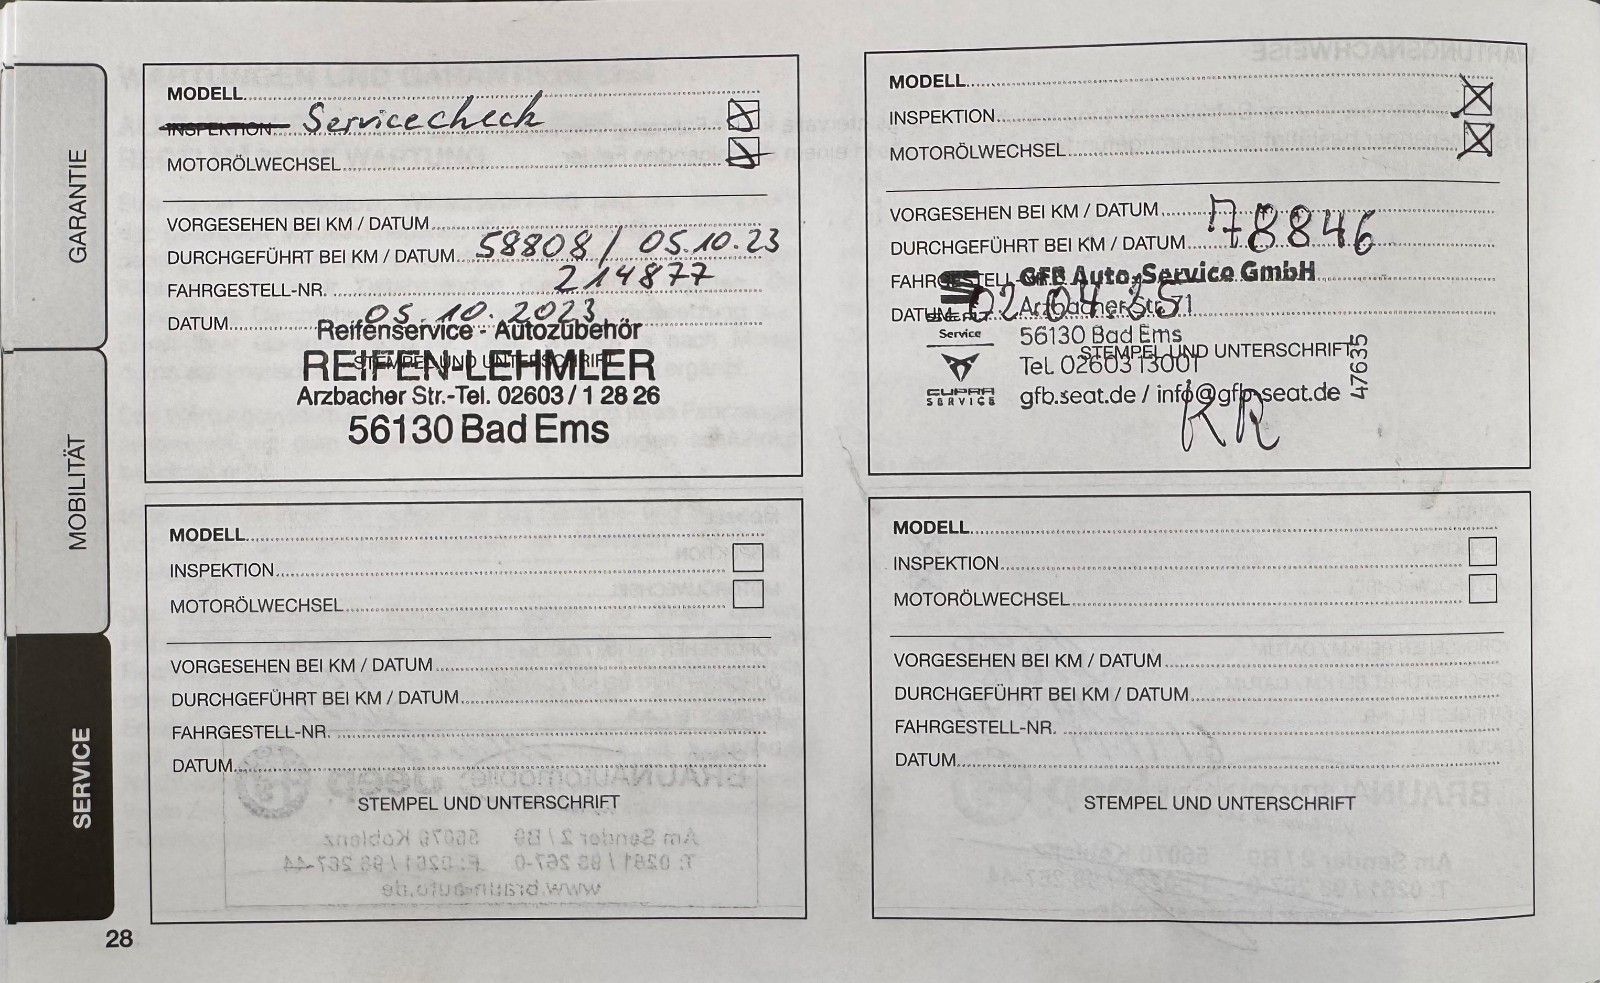 GARANTIE
MOBILITÄT
SERVICE
MODELL
INSPEKTION Servicecheck
MOTORÖLWECHSEL
VORGESEHEN BEI KM / DATUM
DURCHGEFÜHRT BEI KM / DATUM 58808 / 05.10.23
FAHRGESTELL-NR. 214877
DATUM 05.10.2023
Reifenservice - Autozubehör
STEMPEL UND UNTERSCHRIFT
REIFEN-LEHMLER
Arzbacher Str.-Tel. 02603 / 1 28 26
56130 Bad Ems
MODELL
INSPEKTION
MOTORÖLWECHSEL
VORGESEHEN BEI KM / DATUM
DURCHGEFÜHRT BEI KM / DATUM 78846
FAHRGESTELL-
GFB Auto-Service GmbH
DATUM 02.04.25
Arzbacher Str. 71
SEAT
Service
56130 Bad Ems
STEMPEL UND UNTERSCHRIFT
Tel. 02603 13001
CUPRA
SERVICE
gfb.seat.de / info@gfb-seat.de
47635
MODELL
INSPEKTION
MOTORÖLWECHSEL
VORGESEHEN BEI KM / DATUM
DURCHGEFÜHRT BEI KM / DATUM
FAHRGESTELL-NR.
DATUM
STEMPEL UND UNTERSCHRIFT
MODELL
INSPEKTION
MOTORÖLWECHSEL
VORGESEHEN BEI KM / DATUM
DURCHGEFÜHRT BEI KM / DATUM
FAHRGESTELL-NR.
DATUM
STEMPEL UND UNTERSCHRIFT
28